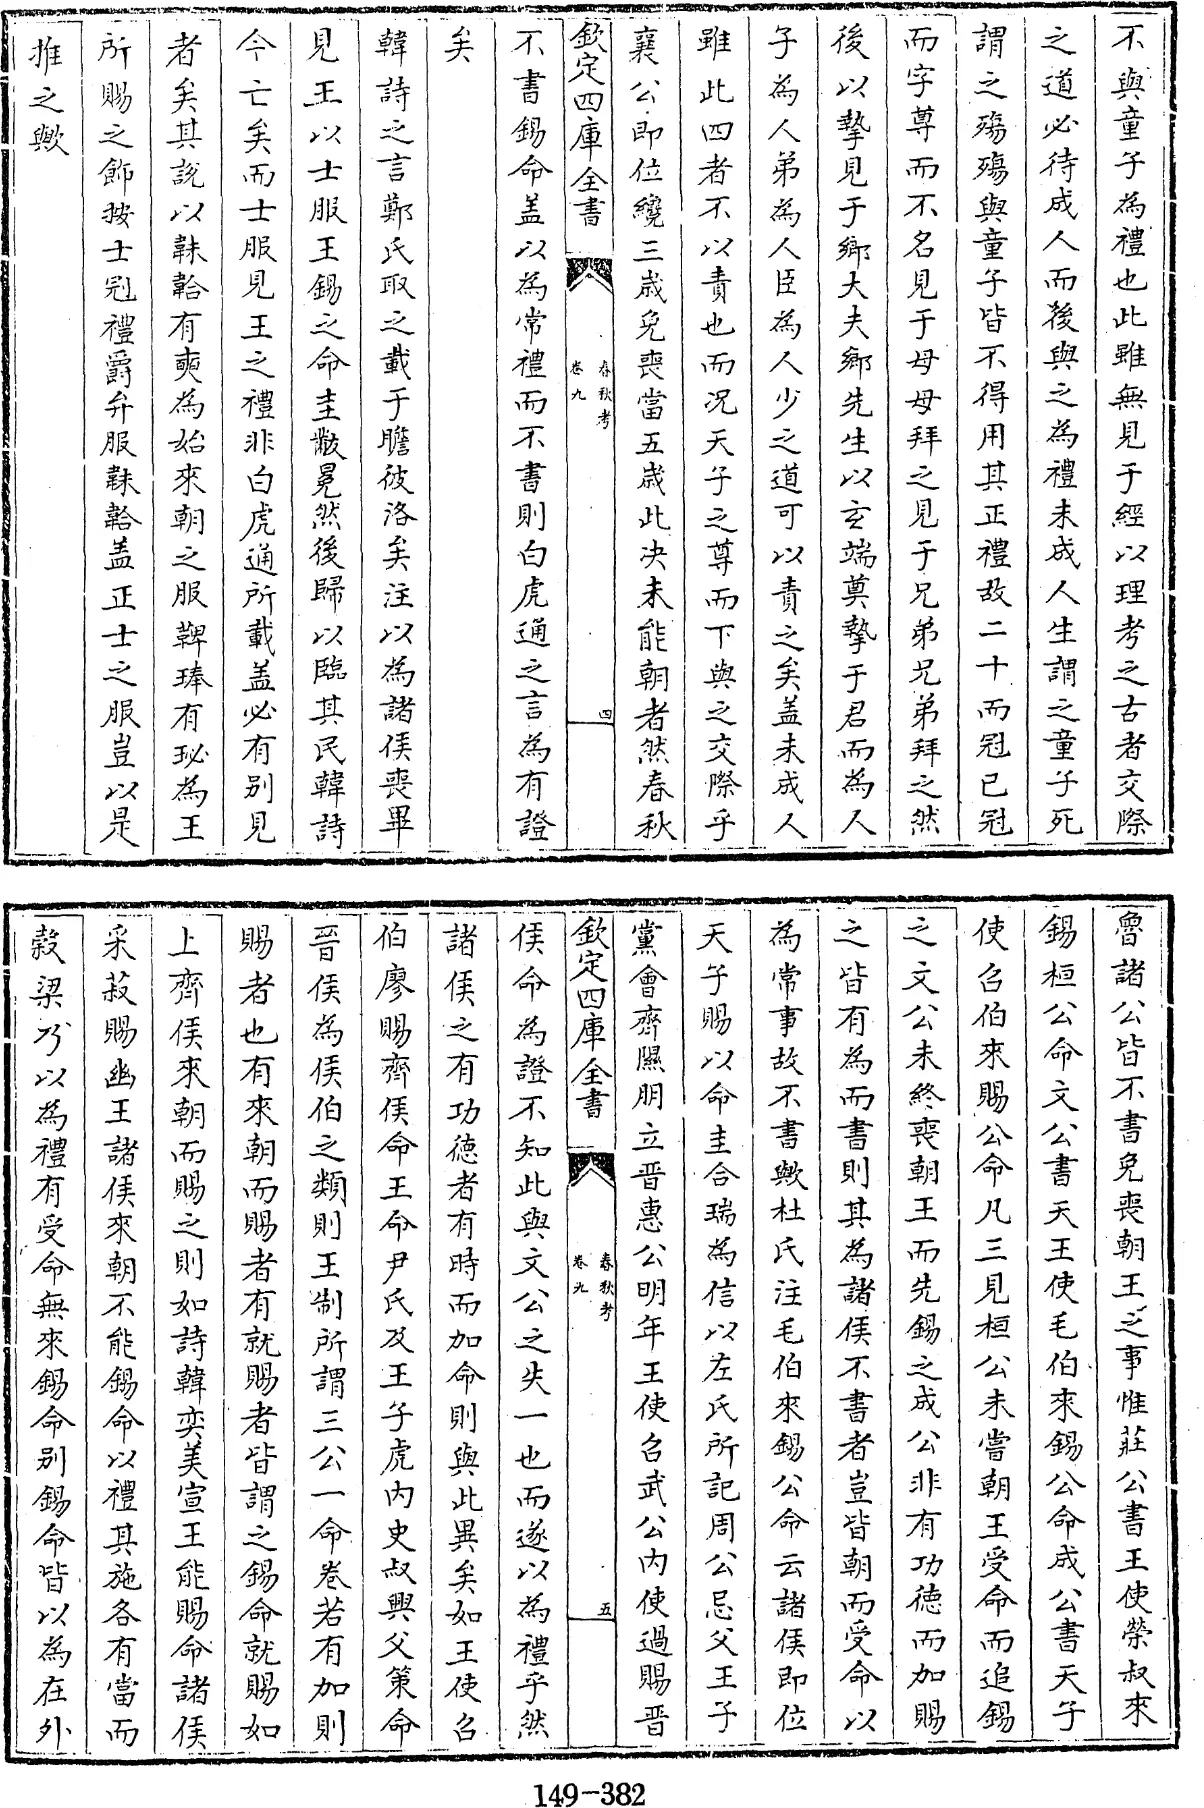 不與童子為禮也此雖無見于經以理考之古者交際
之道必待成人而後與之為禮未成人生謂之童子死
謂之殤殤與童子皆不得用其正禮故二十而冠已冠
而字尊而不名見于母母拜之見于兄弟兄弟拜之然
後以摯見于鄉大夫鄉先生以玄端奠摯于君而為人
子為人弟為人臣為人少之道可以責之矣盖未成人
雖此四者不以責也而况天子之尊而下與之交際乎
襄公即位纔三歲免喪當五歲此决未能朝者然春秋
欽定四庫全書
春秋考
卷九
四
不書錫命盖以為常禮而不書則白虎通之言為有證
矣
韓詩之言鄭氏取之載于瞻彼洛矣注以為諸侯喪畢
見王以士服王錫之命圭黻冕然後歸以臨其民韓詩
今亡矣而士服見王之禮非白虎通所載盖必有别見
者矣其說以韎韐有奭為始來朝之服鞞琫有珌為王
所賜之飾按士冠禮爵弁服韎韐盖正士之服豈以是
推之歟
魯諸公皆不書免喪朝王之事惟莊公書王使榮叔來
錫桓公命文公書天王使毛伯來錫公命成公書天子
使召伯來賜公命凡三見桓公未嘗朝王受命而追錫
之文公未終喪朝王而先錫之成公非有功德而加賜
之皆有為而書則其為諸侯不書者豈皆朝而受命以
為常事故不書歟杜氏注毛伯來錫公命云諸侯即位
天子賜以命圭合瑞為信以左氏所記周公忌父王子
黨會齊隰朋立晋惠公明年王使召武公内使過賜晋
欽定四庫全書
春秋考
卷九
五
侯命為證不知此與文公之失一也而遂以為禮乎然
諸侯之有功德者有時而加命則與此異矣如王使召
伯廖賜齊侯命王命尹氏及王子虎内史叔興父策命
晋侯為侯伯之類則王制所謂三公一命卷若有加則
賜者也有來朝而賜者有就賜者皆謂之錫命就賜如
上齊侯來朝而賜之則如詩韓奕美宣王能賜命諸侯
采菽賜幽王諸侯來朝不能錫命以禮其施各有當而
穀梁乃以為禮有受命無來錫命别錫命皆以為在外
149-382